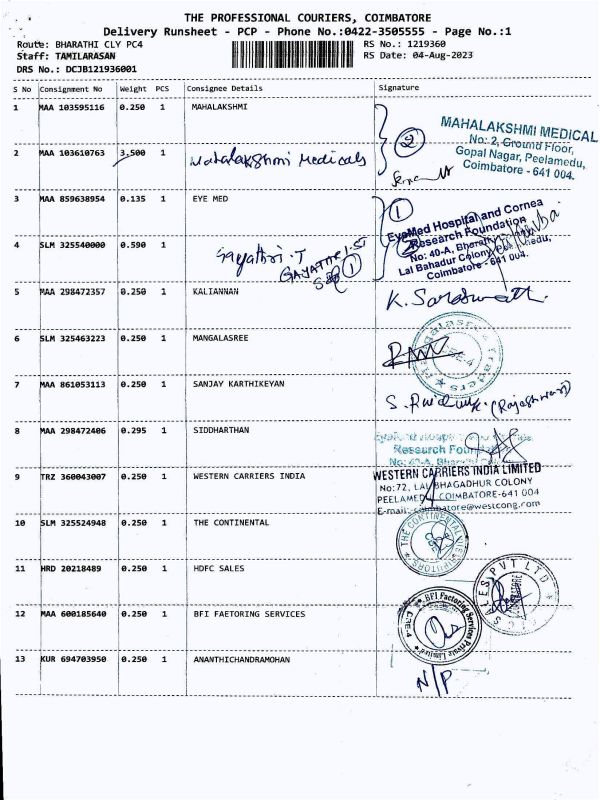 THE PROFESSIONAL COURIERS, COIMBATORE
Delivery Runsheet - PCP - Phone No.:0422-3505555 - Page No.:1
Route: BHARATHI CLY PC4 RS No.: 1219360
Staff: TAMILARASAN RS Date: 04-Aug-2023
DRS No.: DCJB121936001
S No Consignment No Weight PCS Consignee Details Signature
1 MAA 103595116 0.250 1 MAHALAKSHMI
2
MAHALAKSHMI MEDICAL
No: 2, Ground Floor,
Gopal Nagar, Peelamedu,
Coimbatore - 641 004.
2 MAA 103610763 3.500 1 Mahalakshmi Medicals
3 MAA 859638954 0.135 1 EYE MED
1
EyeMed Hospital and Cornea
Research Foundation
No: 40-A, Bharathi
Lal Bahadur Colony
Coimbatore - 641 004.
4 SLM 325540000 0.590 1 Gayathri.T
GAYATHRI.ST
1
5 MAA 298472357 0.250 1 KALIANNAN K. Saraswathi.
6 SLM 325463223 0.250 1 MANGALASREE
Mangalasree Traders
CBE-4
7 MAA 861053113 0.250 1 SANJAY KARTHIKEYAN (Rajeshwari)
8 MAA 298472406 0.295 1 SIDDHARTHAN
Research
9 TRZ 360043007 0.250 1 WESTERN CARRIERS INDIA
WESTERN CARRIERS INDIA LIMITED
No:72, LAL BHAGADHUR COLONY
PEELAMEDU, COIMBATORE-641 004
E-mail: coimbatore@westcong.com
10 SLM 325524948 0.250 1 THE CONTINENTAL
THE CONTINENTAL
11 HRD 20218489 0.250 1 HDFC SALES
SALES PVT LTD
12 MAA 600185640 0.250 1 BFI FAETORING SERVICES
BFI Factoring Services Private Limited
CBE-4
13 KUR 694703950 0.250 1 ANANTHICHANDRAMOHAN
N/P